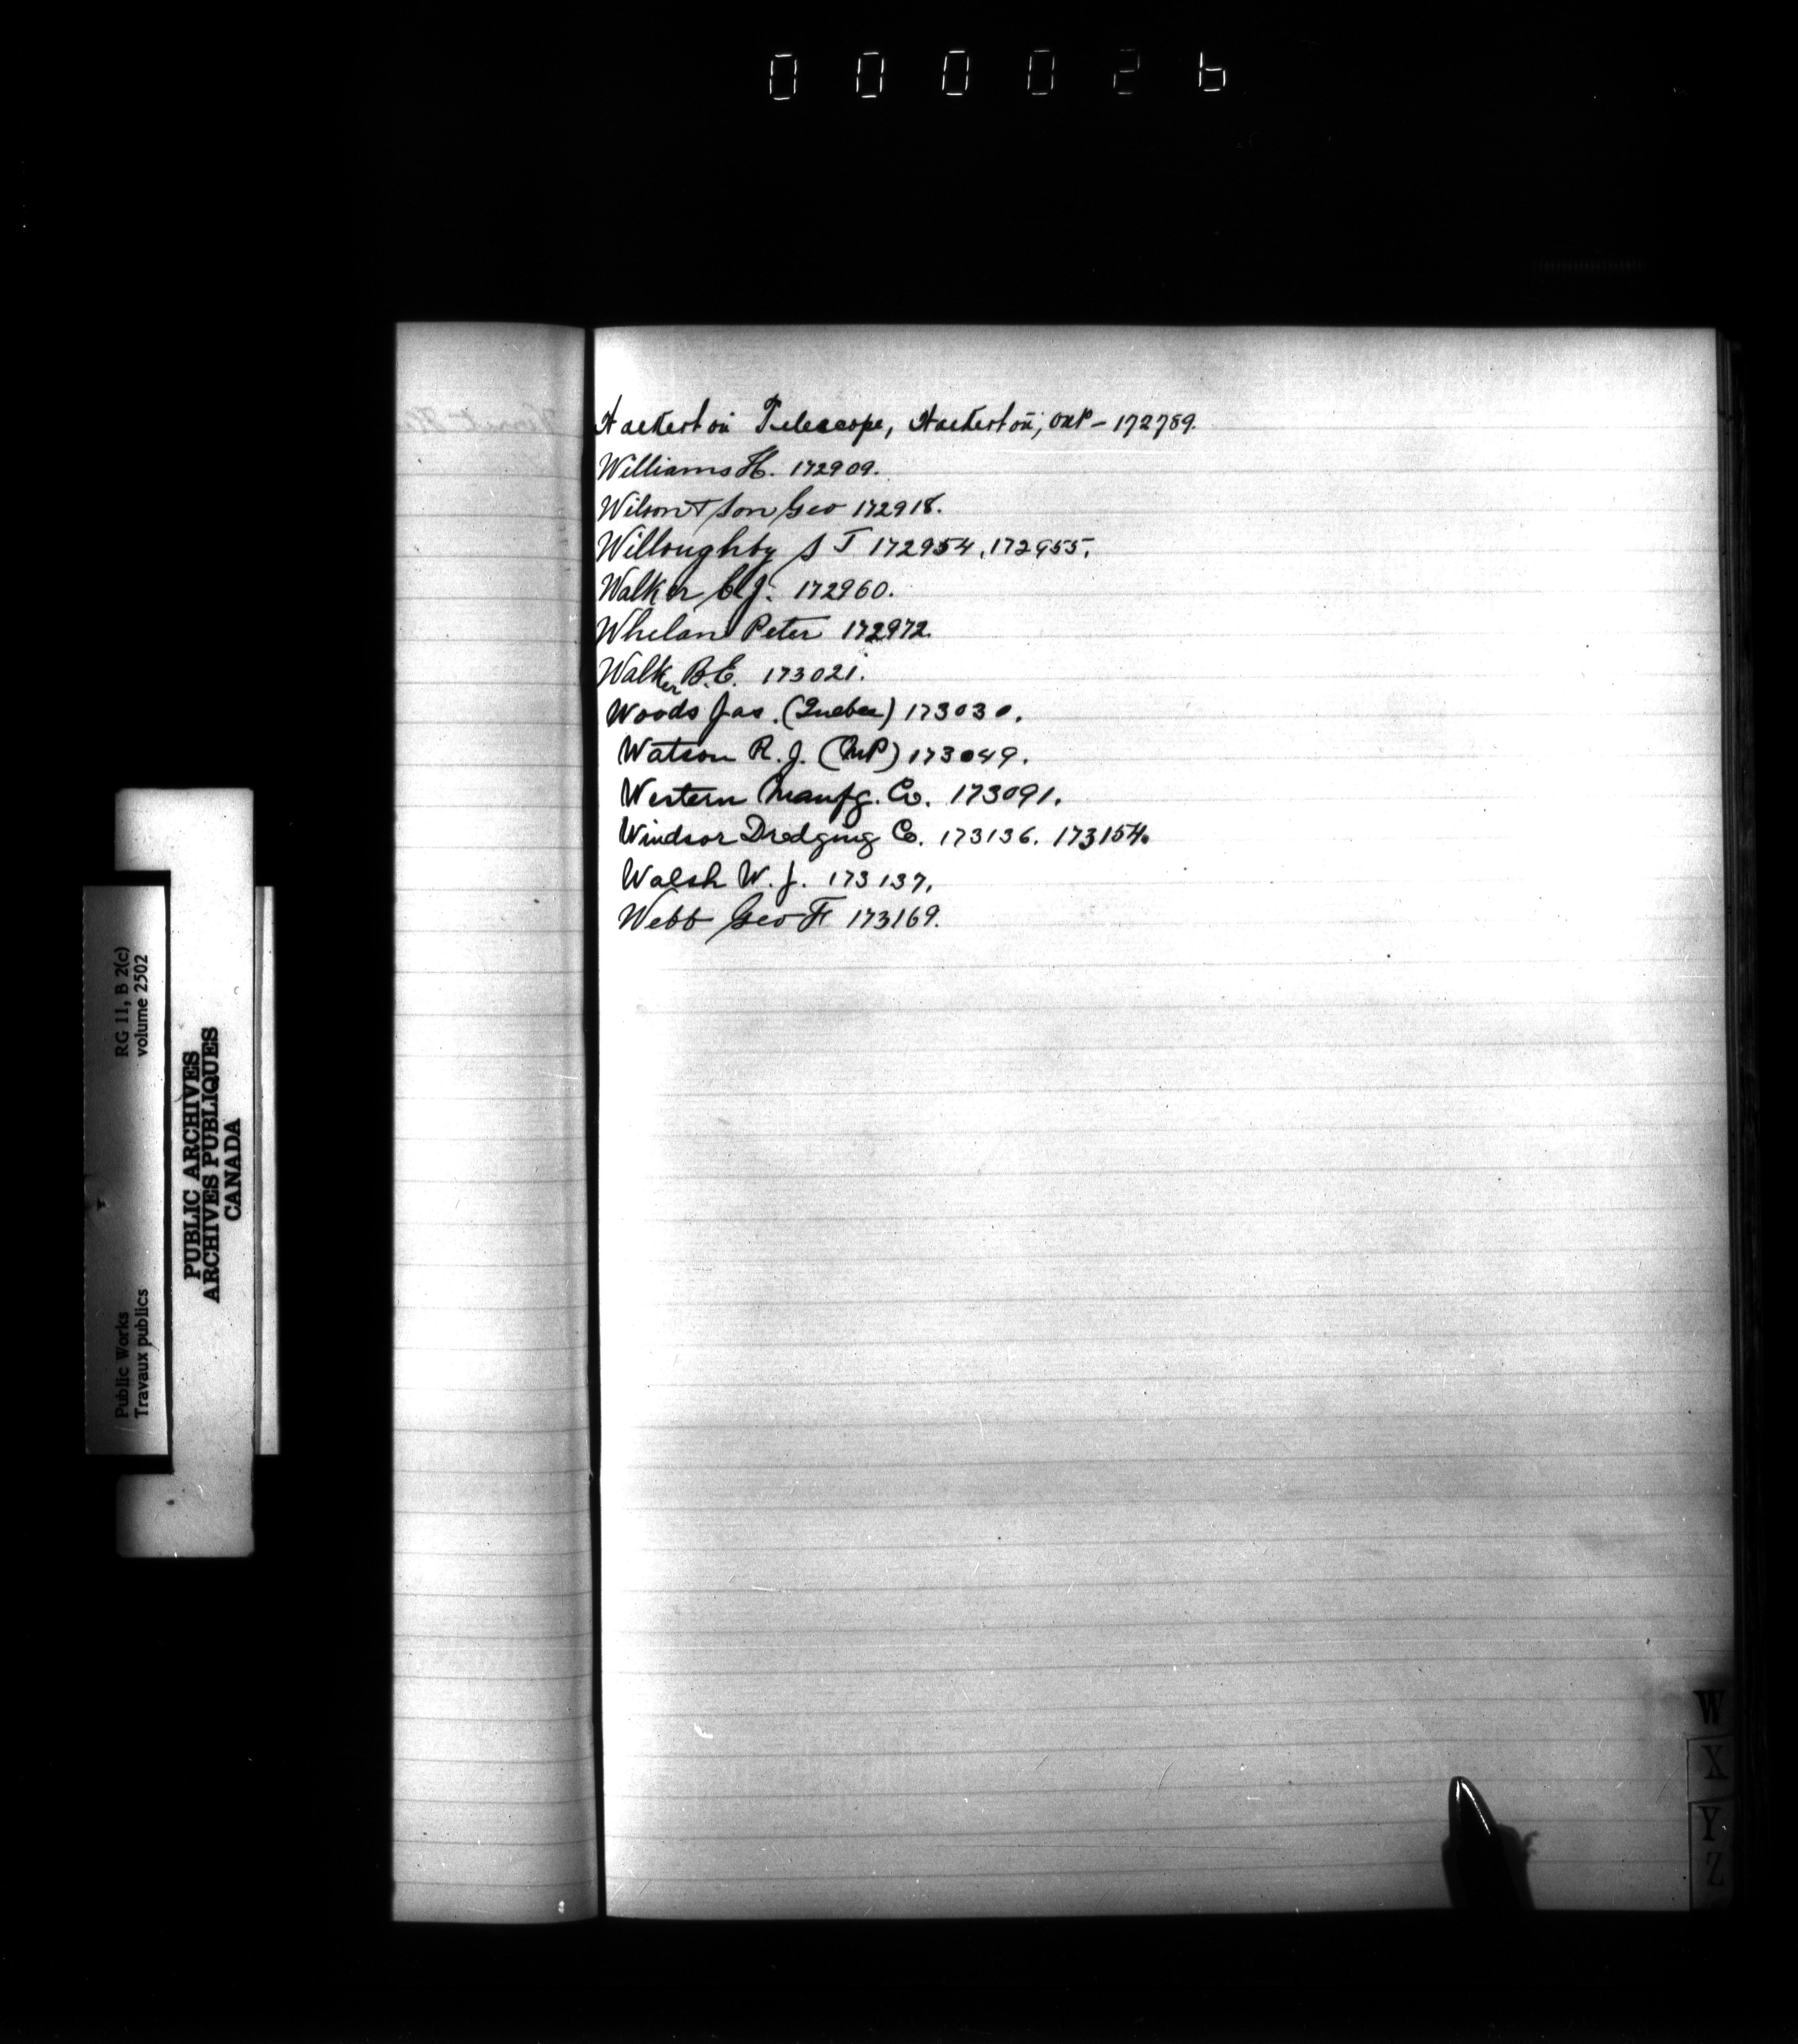 000026
Wakerton Telescope, Wakerton, Ont - 172789.
Williams H. 172909.
Wilson & Son Geo 172918.
Willoughby S T 172954, 172955,
Walker C.J. 172960.
Whelan Peter 172972.
Walker B.E. 173021.
Woods Jas. (Quebec) 173030.
Watson R. J. (MP) 173049.
Western Manfg. Co. 173091.
Windsor Dredging Co. 173136. 173154.
Walsh W. J. 173137,
Webb Geo H 173169.
W
X
Y
Z
RG 11, B 2(c)
volume 2502
Public Works
Travaux publics
PUBLIC ARCHIVES
ARCHIVES PUBLIQUES
CANADA